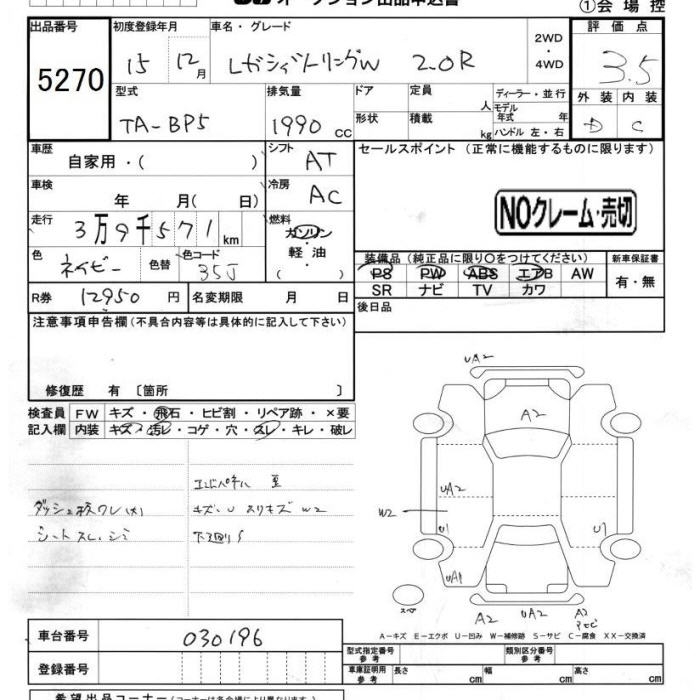 オークション出品申込書
①会場控
出品番号 初度登録年月 車名・グレード 評価点
5270 15 12月 レガシィツーリングW 2.0R 2WD・4WD 3.5
型式 排気量 ドア 定員 人 ディーラー・並行 外装 内装
TA-BP5 1990 cc 形状 積載 kg モデル年式 年 ハンドル 左・右 D C
車歴 自家用・( ) シフト AT セールスポイント (正常に機能するものに限ります)
車検 年 月( 日) 冷房 AC
NOクレーム・売切
走行 3万9千571km 燃料 ガソリン
軽・油
( )
色 ネイビー 色替 色コード 35J
装備品 (純正品に限り〇をつけてください) 新車保証書
PS PW ABS エアB AW 有・無
SR ナビ TV カワ
R券 12950円 名変期限 月 日 後日品
注意事項申告欄(不具合内容等は具体的に記入して下さい)
修復歴 有 〔箇所 〕
検査員 FW キズ・飛石・ヒビ割・リペア跡・×要
記入欄 内装 キズ・汚レ・コゲ・穴・スレ・キレ・破レ
キズ・U W2
シートスレ・シミ 下回りS
UA2
A2
UA2
W2
U1 U1
UA1
スペア
A2 UA2 A2
A-キズ E-エクボ U-凹み W-補修跡 S-サビ C-腐食 XX-交換済
車台番号 030196 型式指定番号 参考 類別区分番号 参考
登録番号 車庫証明用 参考 長さ cm 幅 cm 高さ cm
希望出品コーナー(コーナーは各会場により異なります)